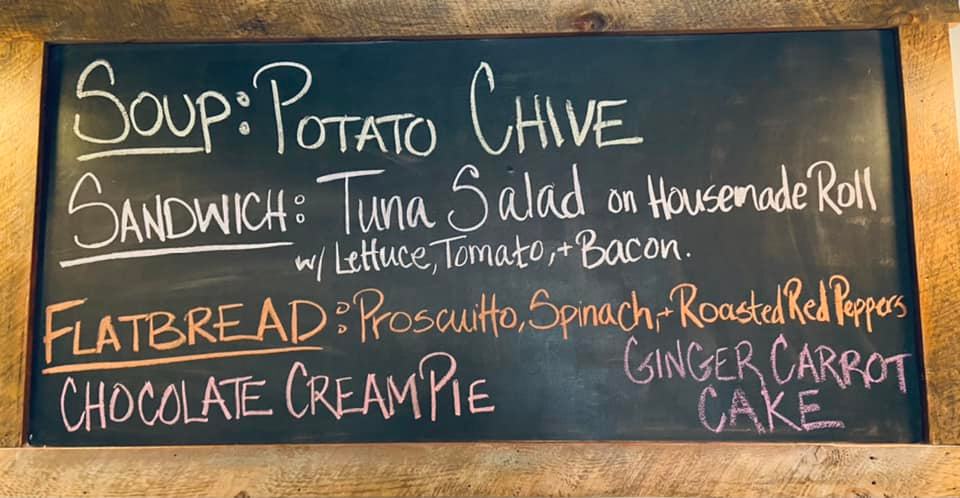 SOUP: POTATO CHIVE
SANDWICH: Tuna Salad on Housemade Roll
w/ Lettuce, Tomato, + Bacon.
FLATBREAD: Proscuitto, Spinach, + Roasted Red Peppers
CHOCOLATE CREAM PIE
GINGER CARROT
CAKE